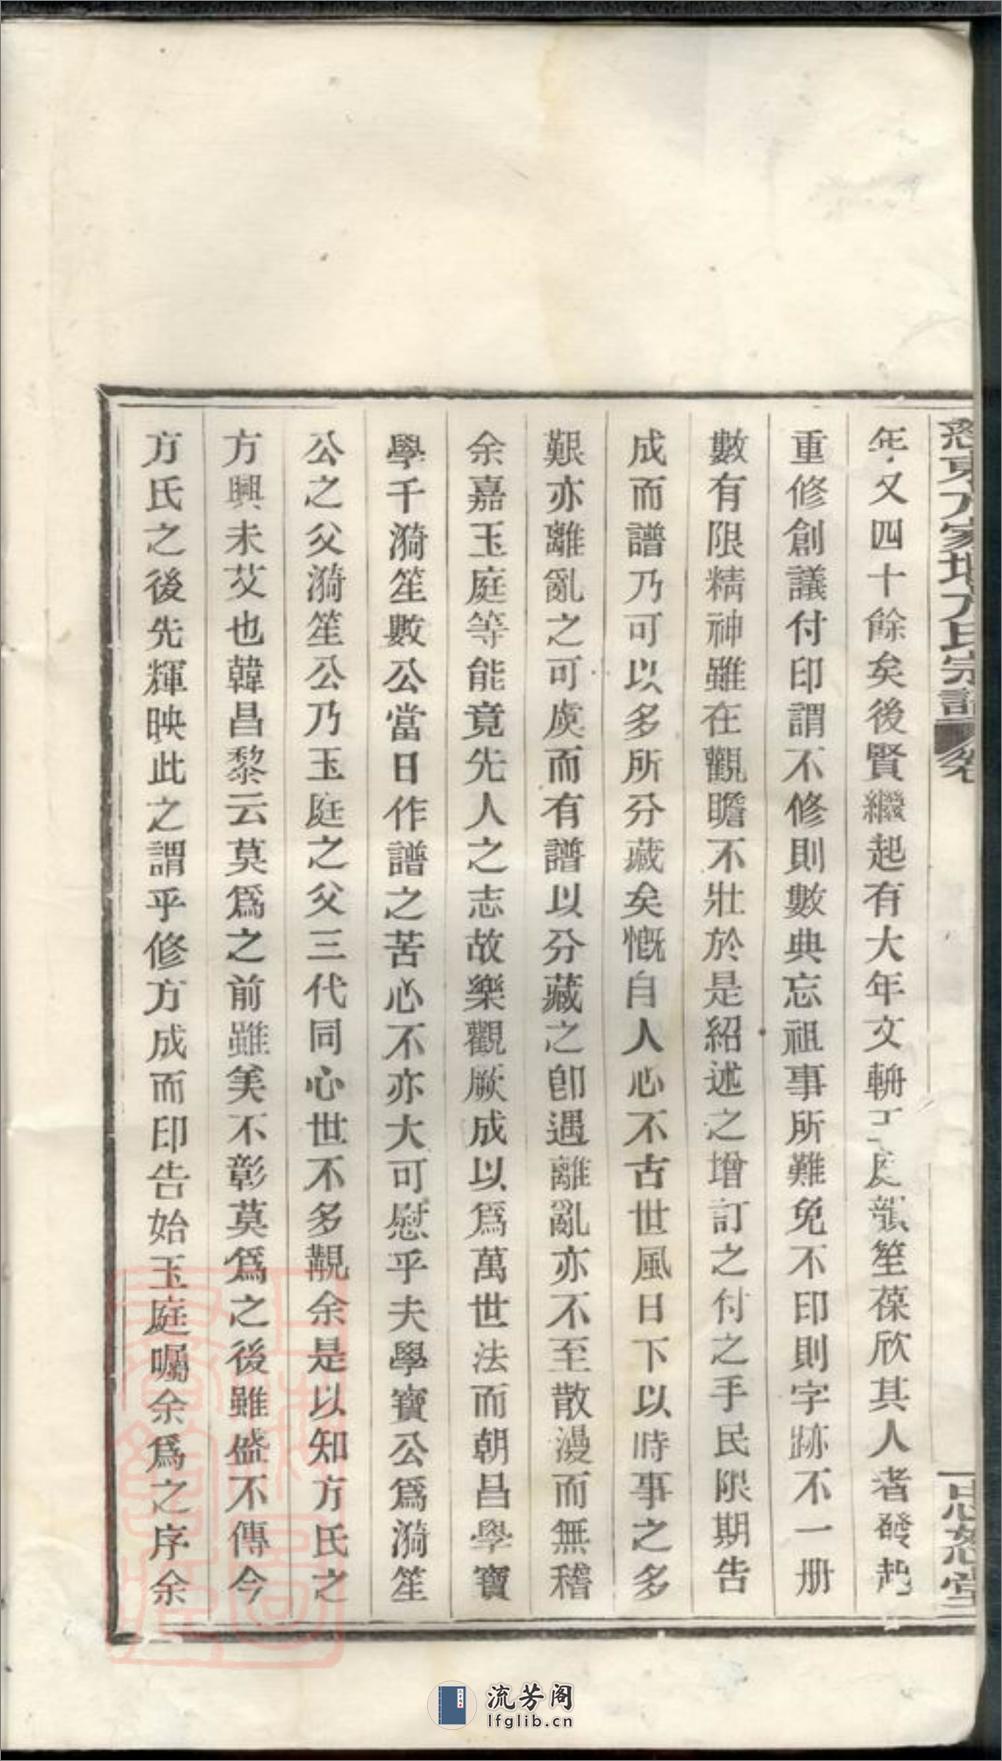 慈東方家堰方氏宗譜 卷
忠恕堂
年又四十餘矣後賢繼起有大年文輈玉庭韻笙葆欣其人者發起
重修創議付印謂不修則數典忘祖事所難免不印則字跡不一册
數有限精神雖在觀瞻不壯於是紹述之增訂之付之手民限期告
成而譜乃可以多所分藏矣慨自人心不古世風日下以時事之多
艱亦離亂之可虞而有譜以分藏之卽遇離亂亦不至散漫而無稽
余嘉玉庭等能竟先人之志故樂觀厥成以爲萬世法而朝昌學寶
學千漪笙數公當日作譜之苦心不亦大可慰乎夫學寶公爲漪笙
公之父漪笙公乃玉庭之父三代同心世不多覯余是以知方氏之
方興未艾也韓昌黎云莫爲之前雖美不彰莫爲之後雖盛不傳今
方氏之後先輝映此之謂乎修方成而印告始玉庭囑余爲之序余
流芳阁
lfglib.cn